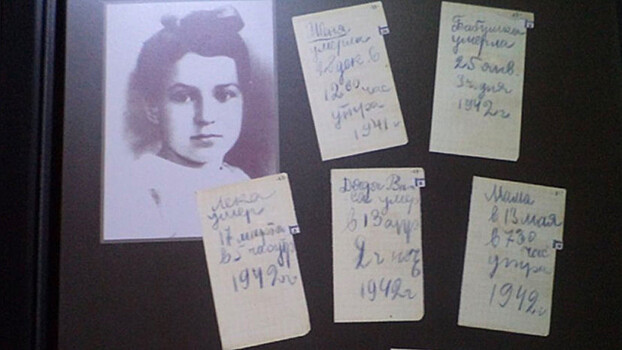 Женя
умерла
28 дек. в
12 00 час
утра
1941 г
Бабушка
умерла
25 янв.
3 ч дня
1942 г
Лека
умер
17 марта
в 5 час утр
1942 г
Дядя Ва
ся умер
в 13 апр
2 ч ноч
1942 г
Мама
в 13 мая
в 7 30
час
утра
1942 г